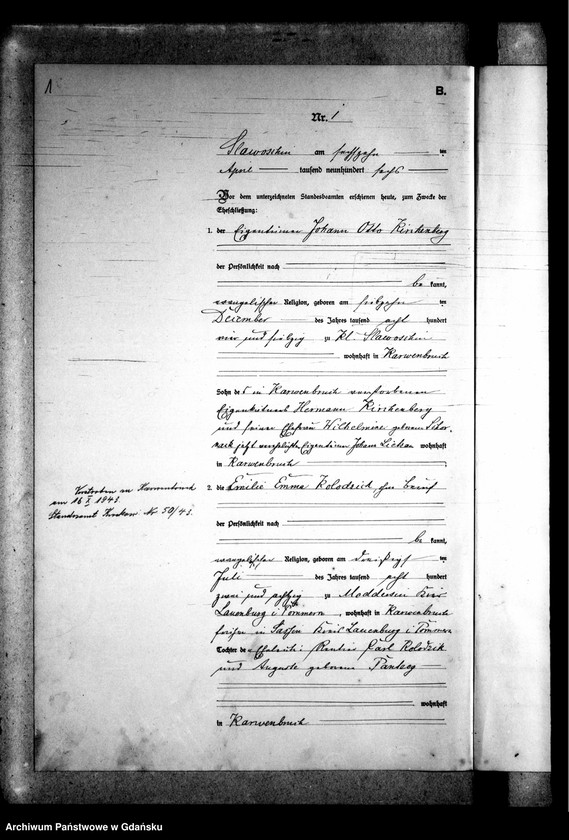 1
B.
Nr. 1
Slawoschin am sechszehn ten
April tausend neunhundert sechs
Vor dem unterzeichneten Standesbeamten erschienen heute, zum Zwecke der
Eheschließung:
1. der Eigentümer Johann Otto Kirschenberg
der Persönlichkeit nach
be kannt,
evangelischer Religion, geboren am siebzehn ten
Dezember des Jahres tausend acht hundert
vier und siebzig zu Kl. Slawoschin
wohnhaft in Karwenbruch
Sohn des in Karwenbruch verstorbenen
Eigentümers Hermann Kirschenberg
und seiner Ehefrau Wilhelmine geborene
jetzt verehelichte Eigentümer Johann wohnhaft
in Karwenbruch
2. die Emilie Emma Kolodzick ohne Beruf
der Persönlichkeit nach
be kannt,
evangelischer Religion, geboren am dreißigs ten
Juli des Jahres tausend acht hundert
zwei und achtzig zu Kreis
Lauenburg i Pommern, wohnhaft in Karwenbruch
früher in Sassin Kreis Lauenburg i Pommern
Tochter der Eheleute: Rentier Carl Kolodzick
und Auguste geborene
wohnhaft
in Karwenbruch
Verstorben in
am 16 I 1943.
Standesamt Krockow Nr 50/43.
Archiwum Państwowe w Gdańsku